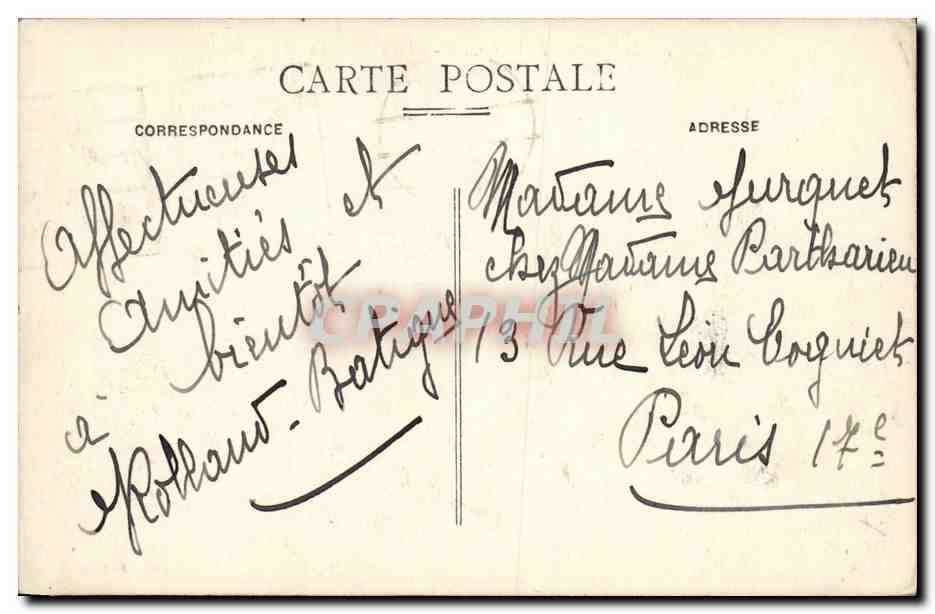 CARTE POSTALE
CORRESPONDANCE
Affectueuses
amitiés et
à bientôt
Rolland-Batigne
ADRESSE
Madame Jurquet
chez Madame Partharieu
13 Rue Léon Cogniet
Paris 17e
CPAPHIL